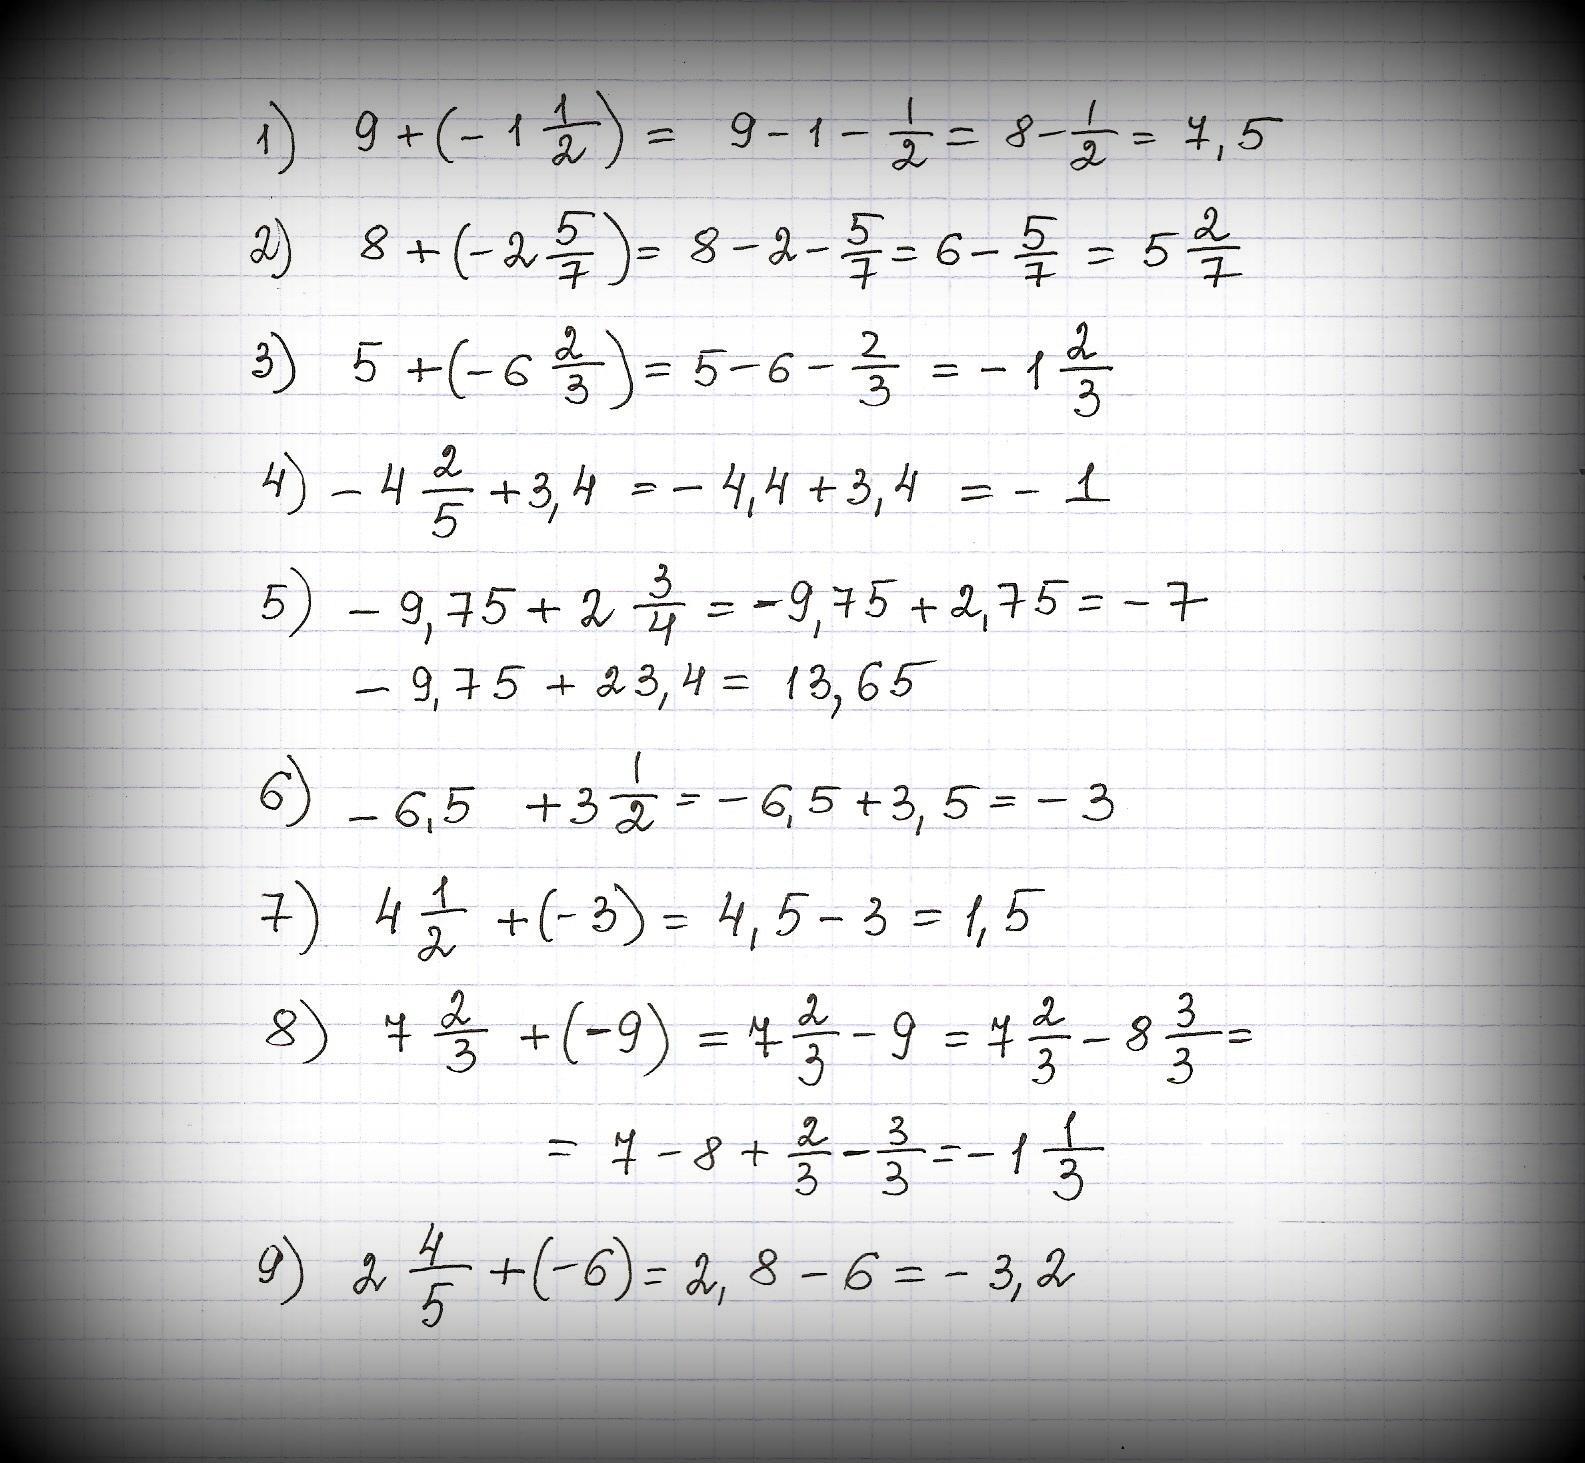 1) 9 + (- 1 1/2) = 9 - 1 - 1/2 = 8 - 1/2 = 7,5
2) 8 + (- 2 5/7) = 8 - 2 - 5/7 = 6 - 5/7 = 5 2/7
3) 5 + (- 6 2/3) = 5 - 6 - 2/3 = - 1 2/3
4) - 4 2/5 + 3,4 = - 4,4 + 3,4 = - 1
5) - 9,75 + 2 3/4 = - 9,75 + 2,75 = - 7
- 9,75 + 23,4 = 13,65
6) - 6,5 + 3 1/2 = - 6,5 + 3,5 = - 3
7) 4 1/2 + (- 3) = 4,5 - 3 = 1,5
8) 7 2/3 + (- 9) = 7 2/3 - 9 = 7 2/3 - 8 3/3 =
= 7 - 8 + 2/3 - 3/3 = - 1 1/3
9) 2 4/5 + (- 6) = 2,8 - 6 = - 3,2